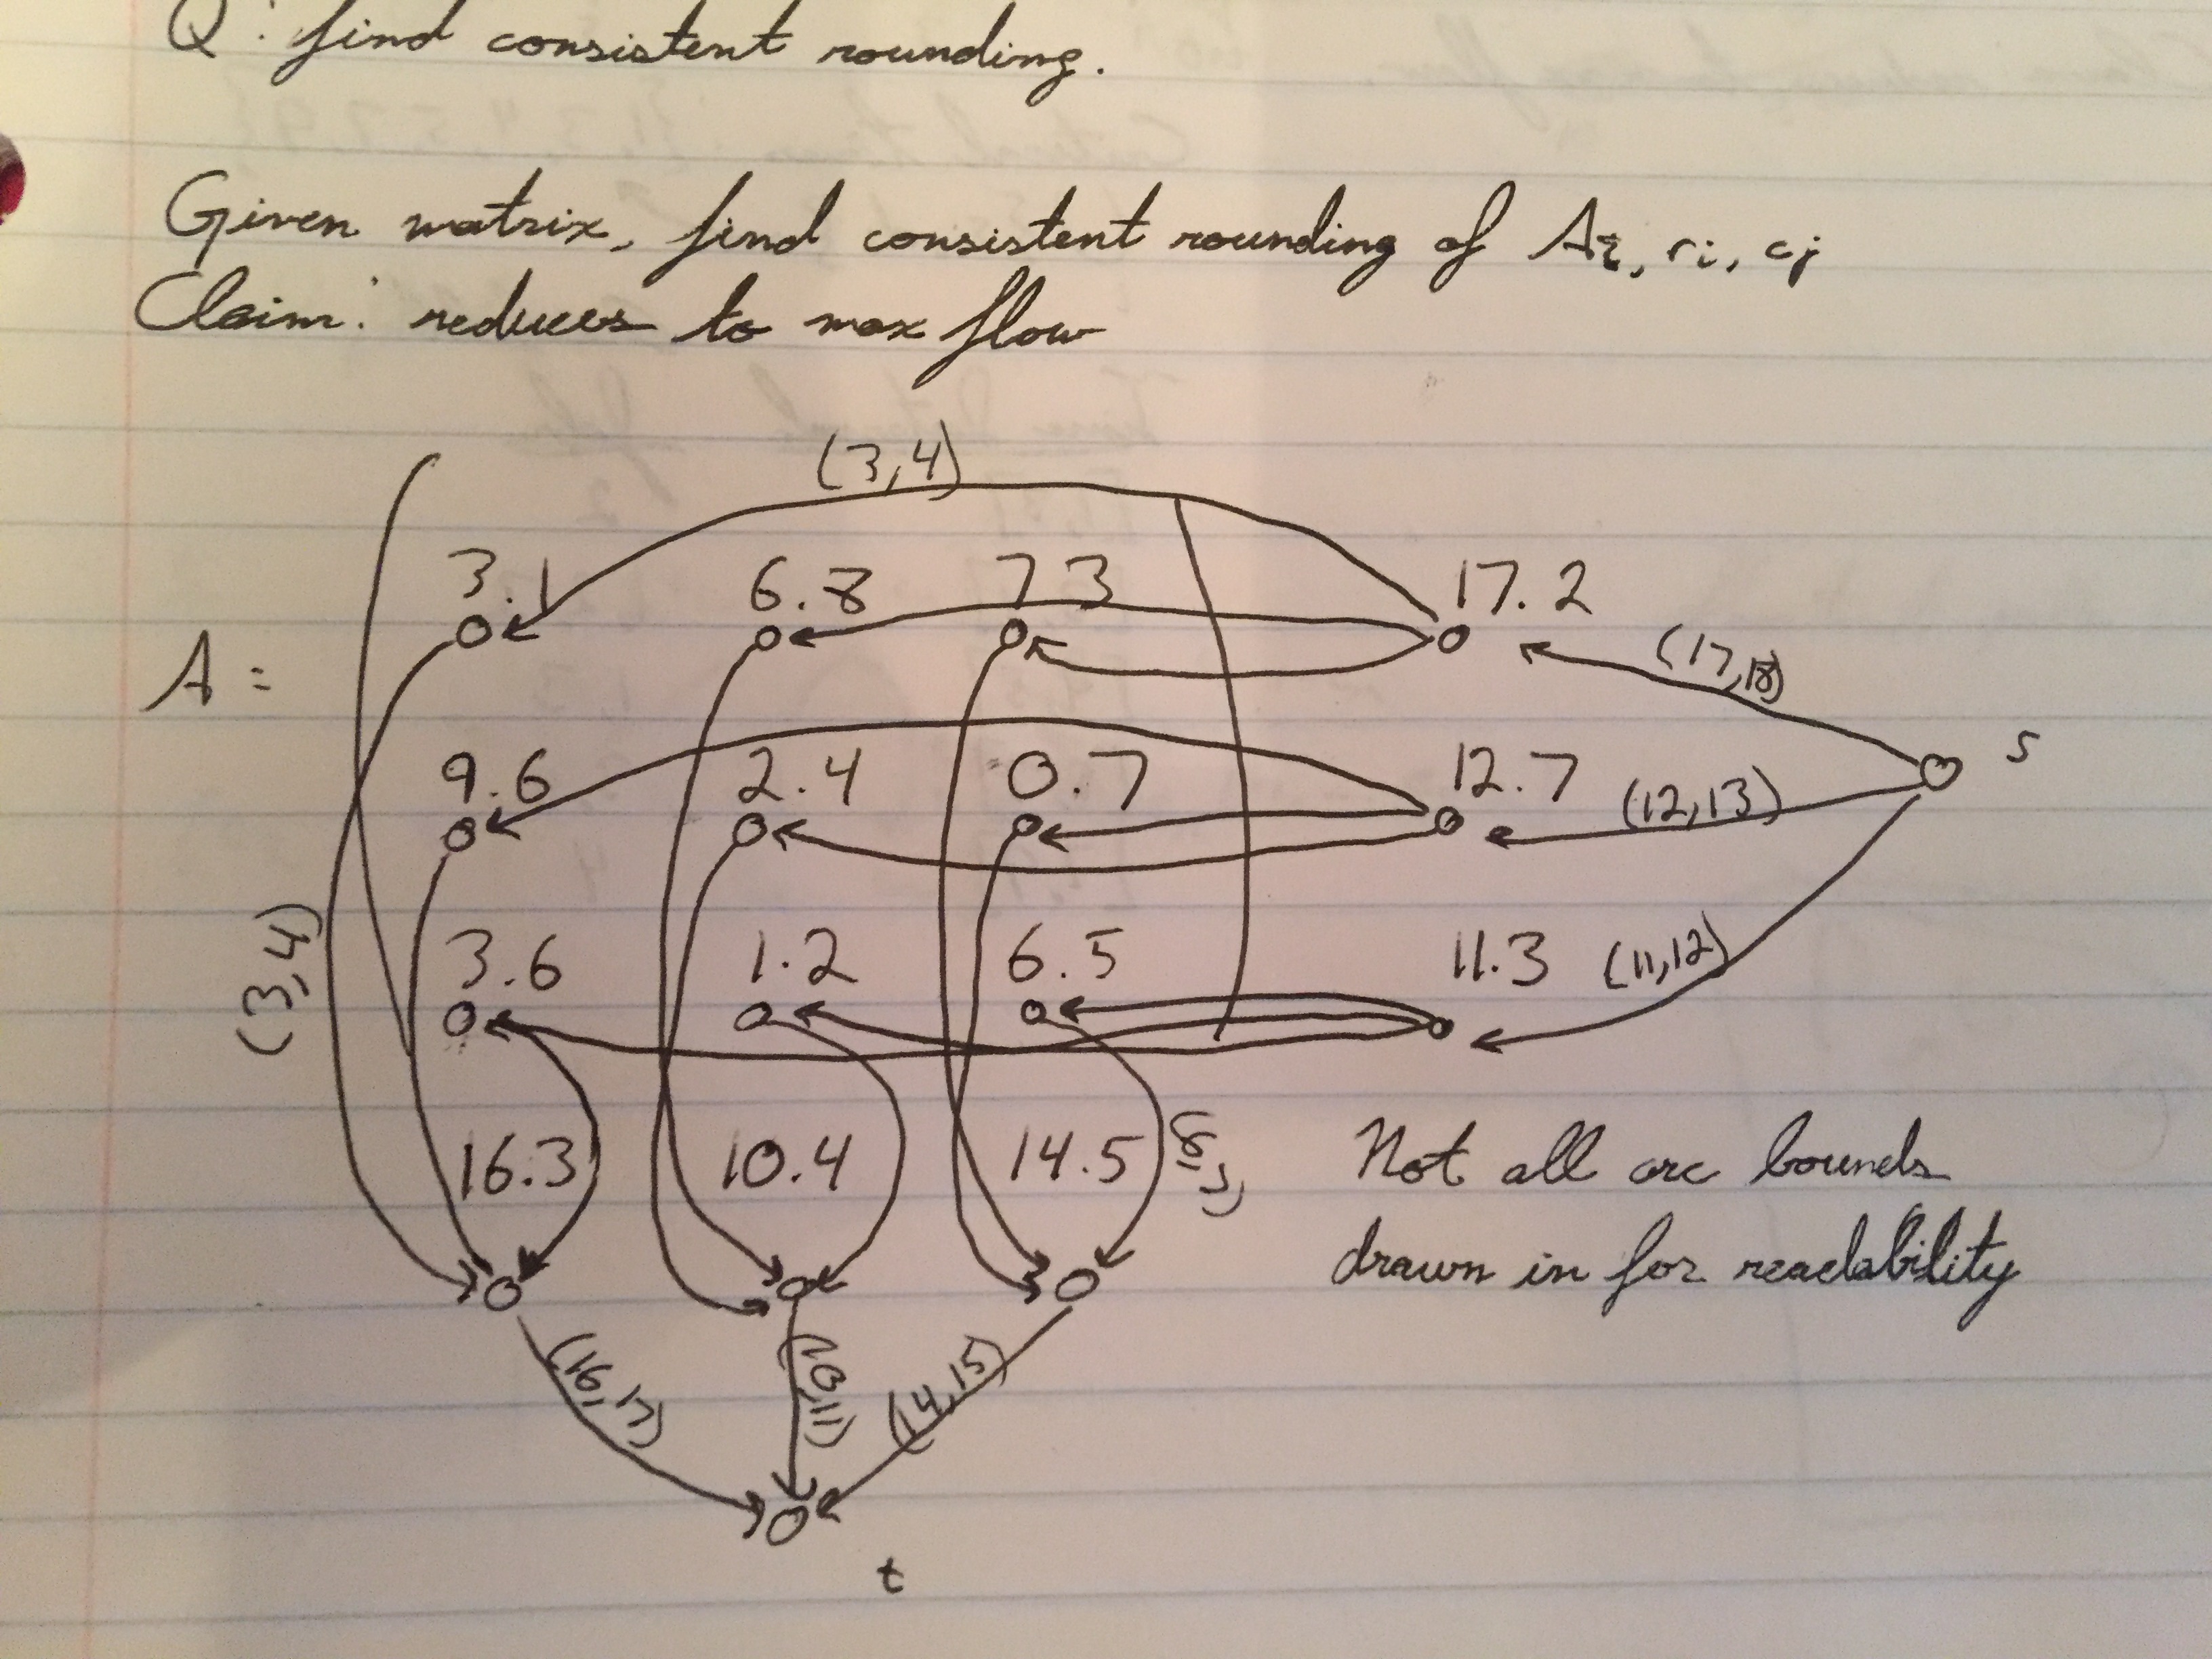 Q: find consistent rounding.
Given matrix, find consistent rounding of Aij, ri, cj
Claim: reduces to max flow
(3,4)
3.1 6.8 7.3 17.2 (17,18)
A =
9.6 2.4 0.7 12.7 (12,13)
s
(3,4)
3.6 1.2 6.5 11.3 (11,12)
16.3 10.4 14.5
Not all arc bounds
drawn in for readability
(16,17) (10,11) (14,15)
t